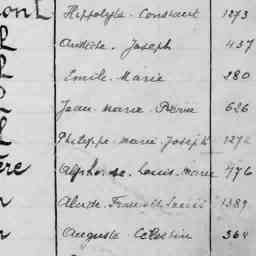 Hippolyte Constant 1273
Aristide Joseph 437
Emile Marie 280
Jean Marie Pierre 626
Philippe Marie Joseph 1272
Alphonse Louis Marie 776
1389
Auguste Célestin 364